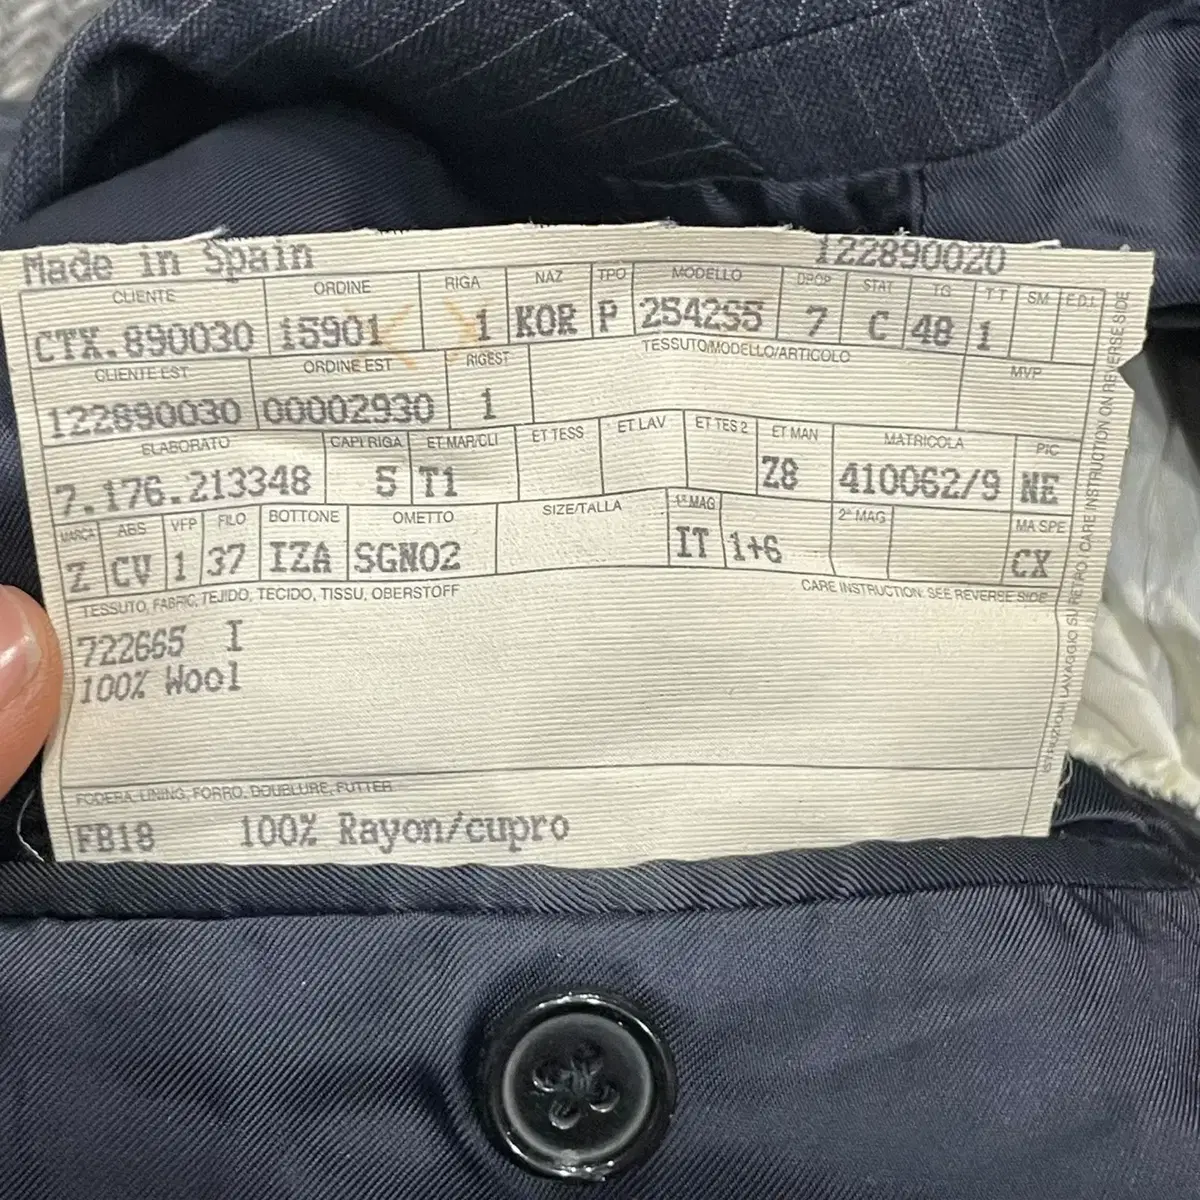 Made in Spain 122890020
CLIENTE ORDINE RIGA NAZ TPO MODELLO DROP STAT TG TT SM E.D.I.
CTX.890030 15901 1 KOR P 254265 7 C 48 1
CLIENTE EST ORDINE EST RIGEST TESSUTO/MODELLO/ARTICOLO MVP
122890030 00002930 1
ELABORATO CAPI RIGA ET.MAR/CLI ET TESS ET LAV ET TES 2 ET MAN MATRICOLA PIC
7.176.213348 5 T1 Z8 410062/9 NE
MARCA ABS VFP FILO BOTTONE OMETTO SIZE/TALLA 1ª MAG 2ª MAG MA SPE
Z CV 1 37 IZA SGN02 IT 1+6 CX
TESSUTO, FABRIC, TEJIDO, TECIDO, TISSU, OBERSTOFF CARE INSTRUCTION: SEE REVERSE SIDE
722665 I
100% Wool
FODERA, LINING, FORRO, DOUBLURE, FUTTER
FB18 100% Rayon/cupro
ISTRUZIONI LAVAGGIO SU RETRO, CARE INSTRUCTION ON REVERSE SIDE